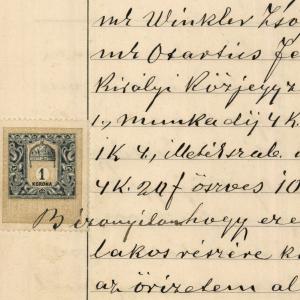 mk Winkler Zso
mk Osartius Je
királyi közjegyz
1., munkadíj 4 K
1 K 4., illetékszab. d
4 K. 20 f öszves 10
Bizonyítom hogy ezen
lakos részére ki
az őrizetem al
1
KORONA